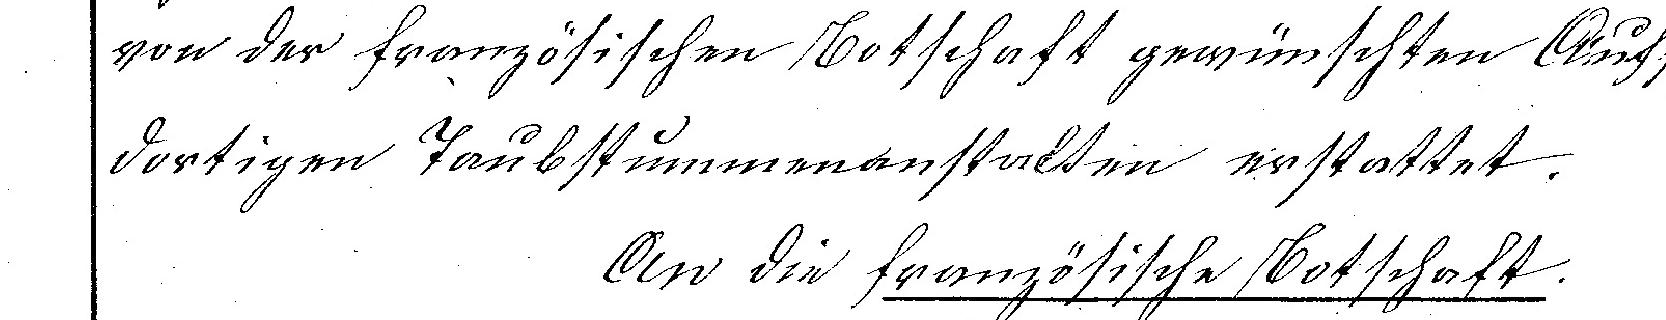 von der französischen Botschaft gewünschten
dortigen Taubstummenanstalten erstattet.
An die französische Botschaft.